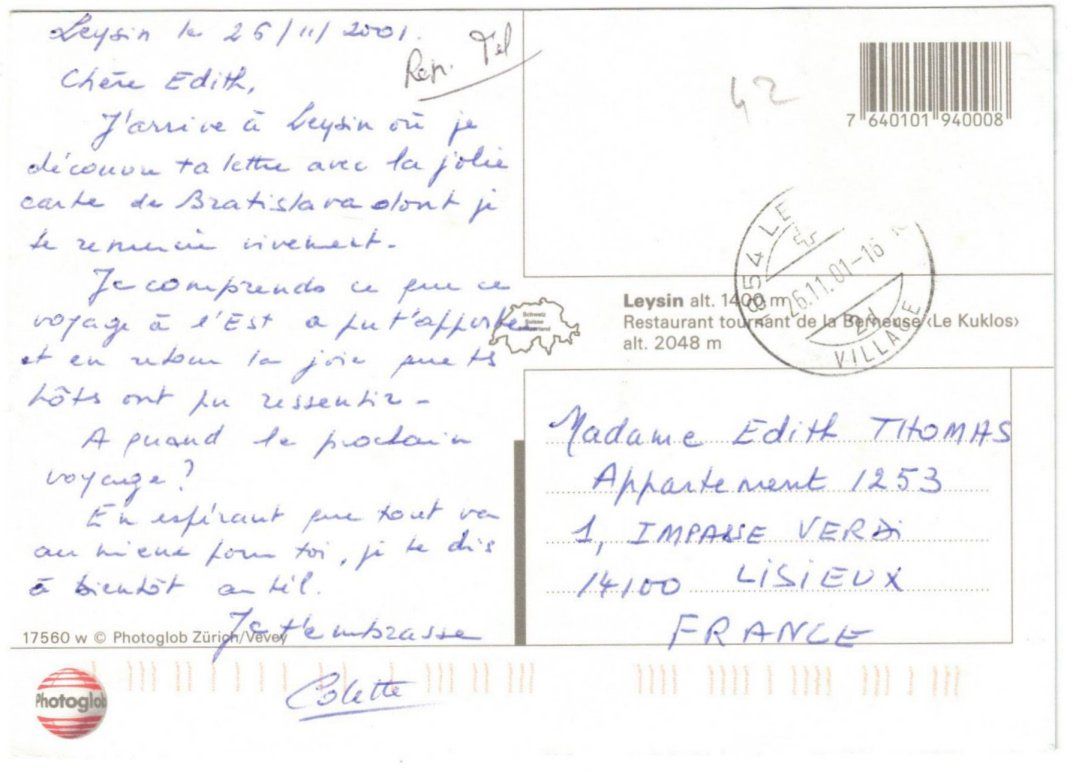 Leysin le 26/11/2001.
Rep. Tel
Chère Edith,
J'arrive à Leysin où je
découvre ta lettre avec la jolie
carte de Bratislava dont je
te remercie vivement.
Je comprends ce que ce
voyage à l'Est a pu t'apporter
et en retour la joie que tes
hôtes ont pu ressentir -
A quand le prochain
voyage?
En espérant que tout va
au mieux pour toi, je te dis
à bientôt au tél.
Je t'embrasse
Colette
17560 w © Photoglob Zürich/Vevey
Photoglob
42
7 640101 940008
1854 LE
26.11.01-16
VILLAGE
Schweiz
Suisse
Switzerland
Leysin alt. 1400 m
Restaurant tournant de la Berneuse ‹Le Kuklos›
alt. 2048 m
Madame Edith THOMAS
Appartement 1253
1, IMPASSE VERDI
14100 LISIEUX
FRANCE